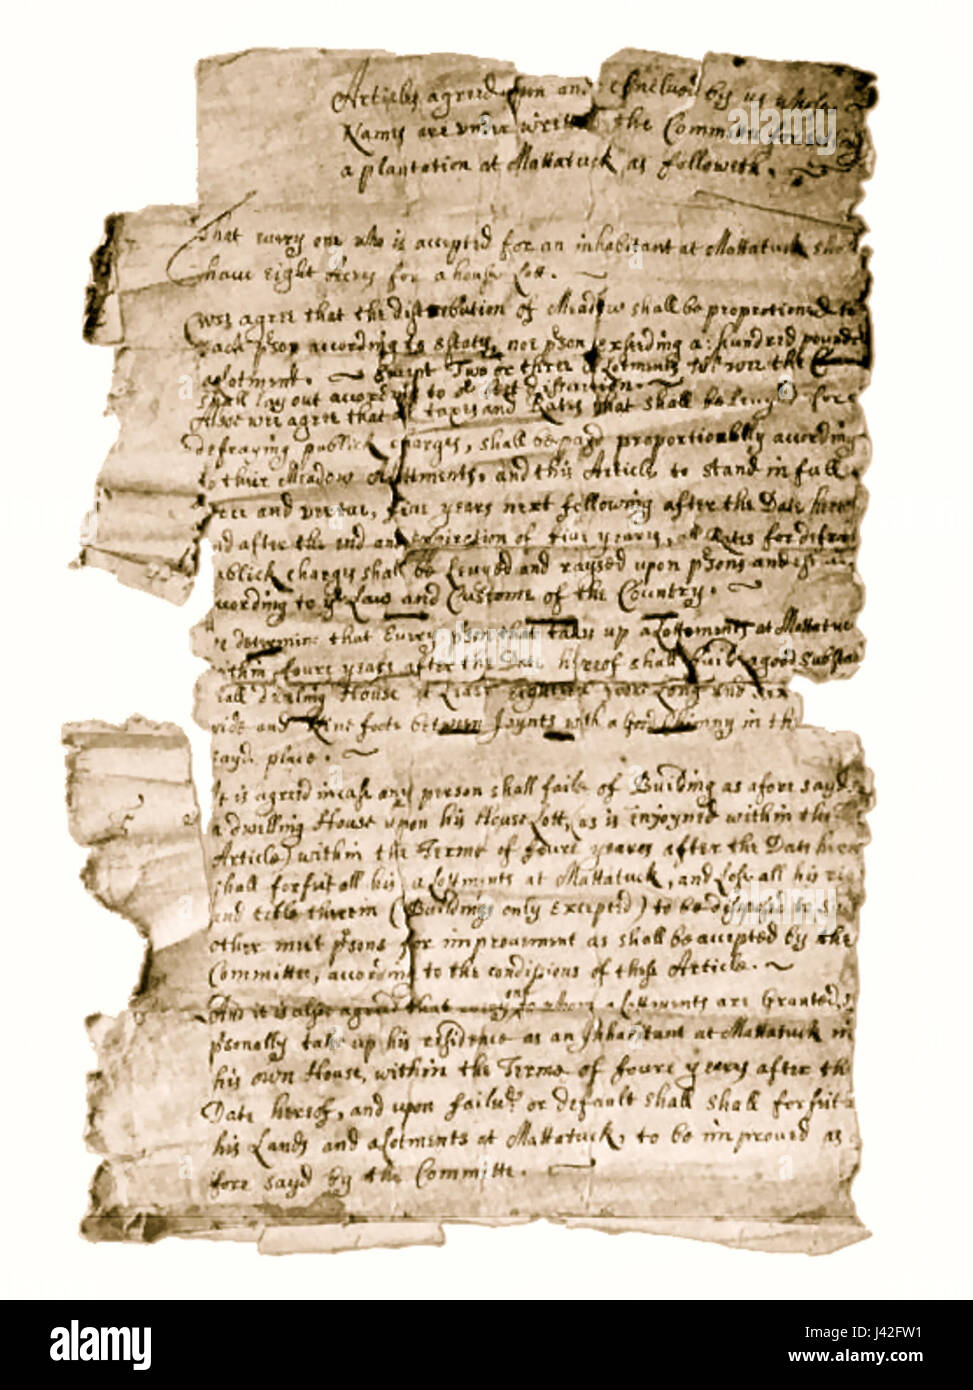 Articles agreed upon and Concluded by us whose
Names are under written the Committe for
a plantation at Mattatuck as followeth.
That every one who is accepted for an inhabitant at Mattatuck sha
have eight Acres for a house Lott.
Wee agree that the distrebution of Meadow shall be proprotioned to
Each pson according to Estate, noe pson exseding a: hundred pounds
alotment. Except Two or three alotments the
shall lay out according to discretion.
Also wee agree that all taxes and Rates that shall be Levyed for
defraying publick charges, shall be payd proportionablly according
to their Meadow Alottments, and this Article to stand in full
orce and vertue, five years next following after the Date here
nd after the end and expiretion of five yeares, all Rates for defrai
ublick charges shall be Levyed and raysed upon psons and est
cording to ye Law and Custome of the Country.
e determine that Every pson that takes up alottements at Mattatuc
within foure yeares after the date hereof shall build a good substan
iall dwelling House at Least eighteen foote Long and six
wide and Nine foote between Joynts with a Good Chimny in th
sayd place.
It is agreed incase any person shall faile of Building as afore sayd
a dwelling House upon his House Lott, as is enjoyned within this
Article) within the Terme of foure yeares after the Date here
shall forfeit all his alottments at Mattatuck, and Lose all his rig
and title therein (Buildings only Excepted) to be disposed to
other meet psons for improvement as shall be accepted by the
Committee, according to the condissions of these Article.
And it is also agreed that every one to whom alottments are Granted,
psonally take up his residence as an Inhabitant at Mattatuck in
his own House, within the Terme of foure yeares after the
Date hereof, and upon failure or default shall shall forfeit
his Lands and alotments at Mattatuck, to be improved as
fore sayd by the Committe.
alamy stock photo
alamy
Image ID: J42FW1
www.alamy.com